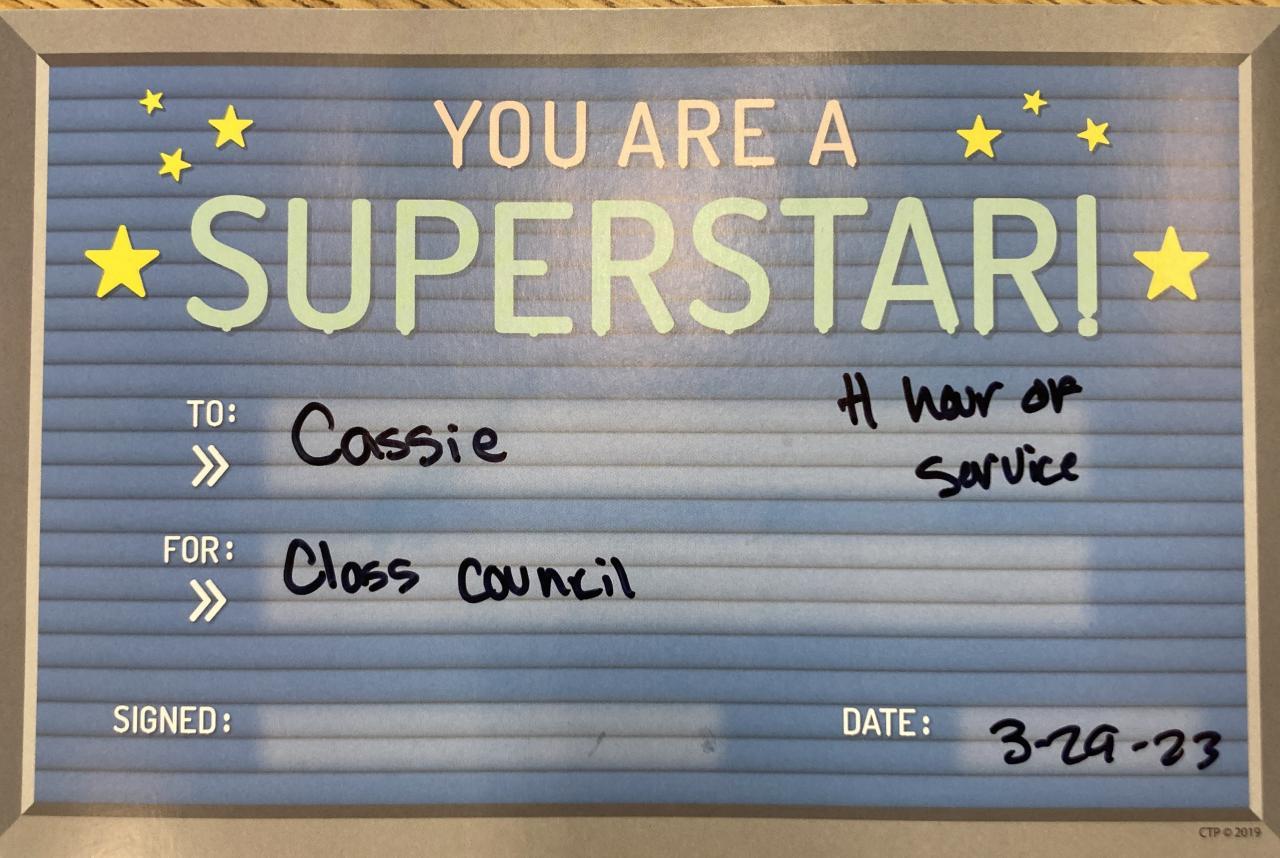 YOU ARE A
SUPERSTAR!
TO:
Cassie
H hour of
service
FOR:
Class Council
SIGNED:
DATE: 3-29-23
CTP © 2019